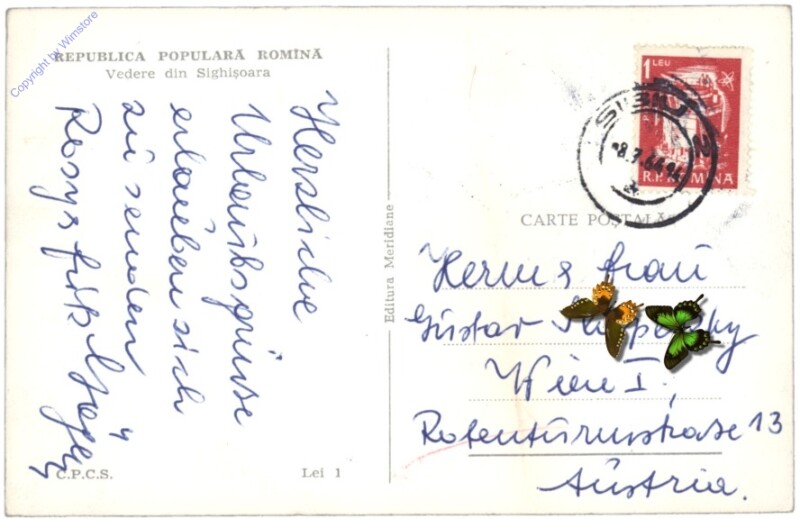 Copyright by Wimstore
REPUBLICA POPULARĂ ROMÎNĂ
Vedere din Sighișoara
Herzliche
Urlaubsgrüsse
erlauben sich
zu senden
Rosy u. Fritz
C.P.C.S.
Lei 1
Editura Meridiane
1 LEU
R.P. ROMINA
CARTE POȘTALĂ
Herrn & Frau
Gustav
Wien I,
Rotenturmstrasse 13
Austria.